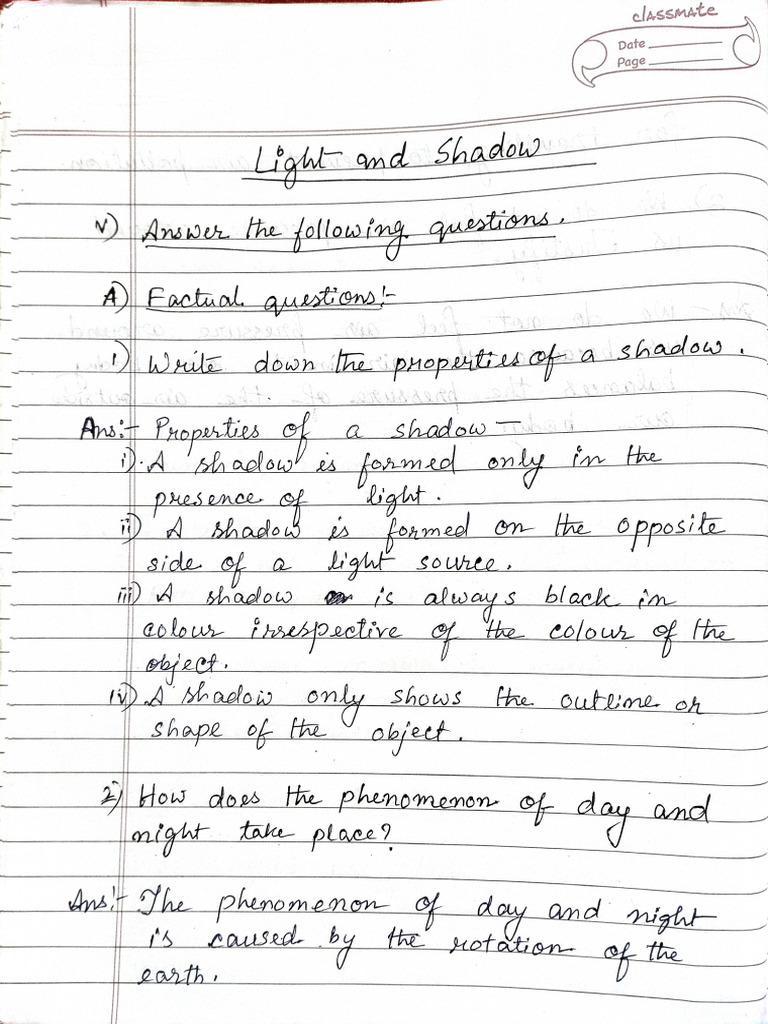 classmate
Date
Page
Light and Shadow
v) Answer the following questions.
A) Factual questions:-
1) Write down the properties of a shadow.
Ans:- Properties of a shadow-
i). A shadow is formed only in the
presence of light.
ii) A shadow is formed on the opposite
side of a light source.
iii) A shadow is always black in
colour irrespective of the colour of the
object.
iv) A shadow only shows the outline or
shape of the object.
2) How does the phenomenon of day and
night take place?
Ans:- The phenomenon of day and night
is caused by the rotation of the
earth.